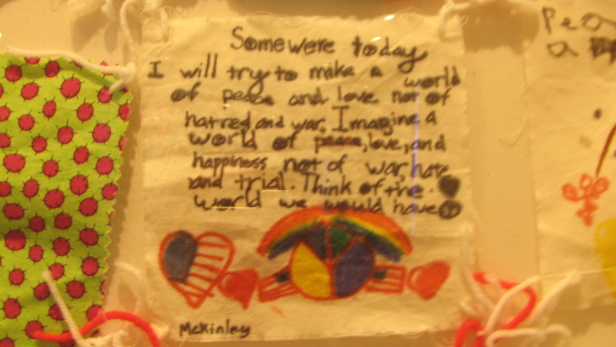 Somewere today
I will try to make a world
of peace and love not of
hatred and war. Imagine a
world of peace, love, and
happiness not of war, hate
and trial. Think of the
world we would have
McKinley
Pea
a